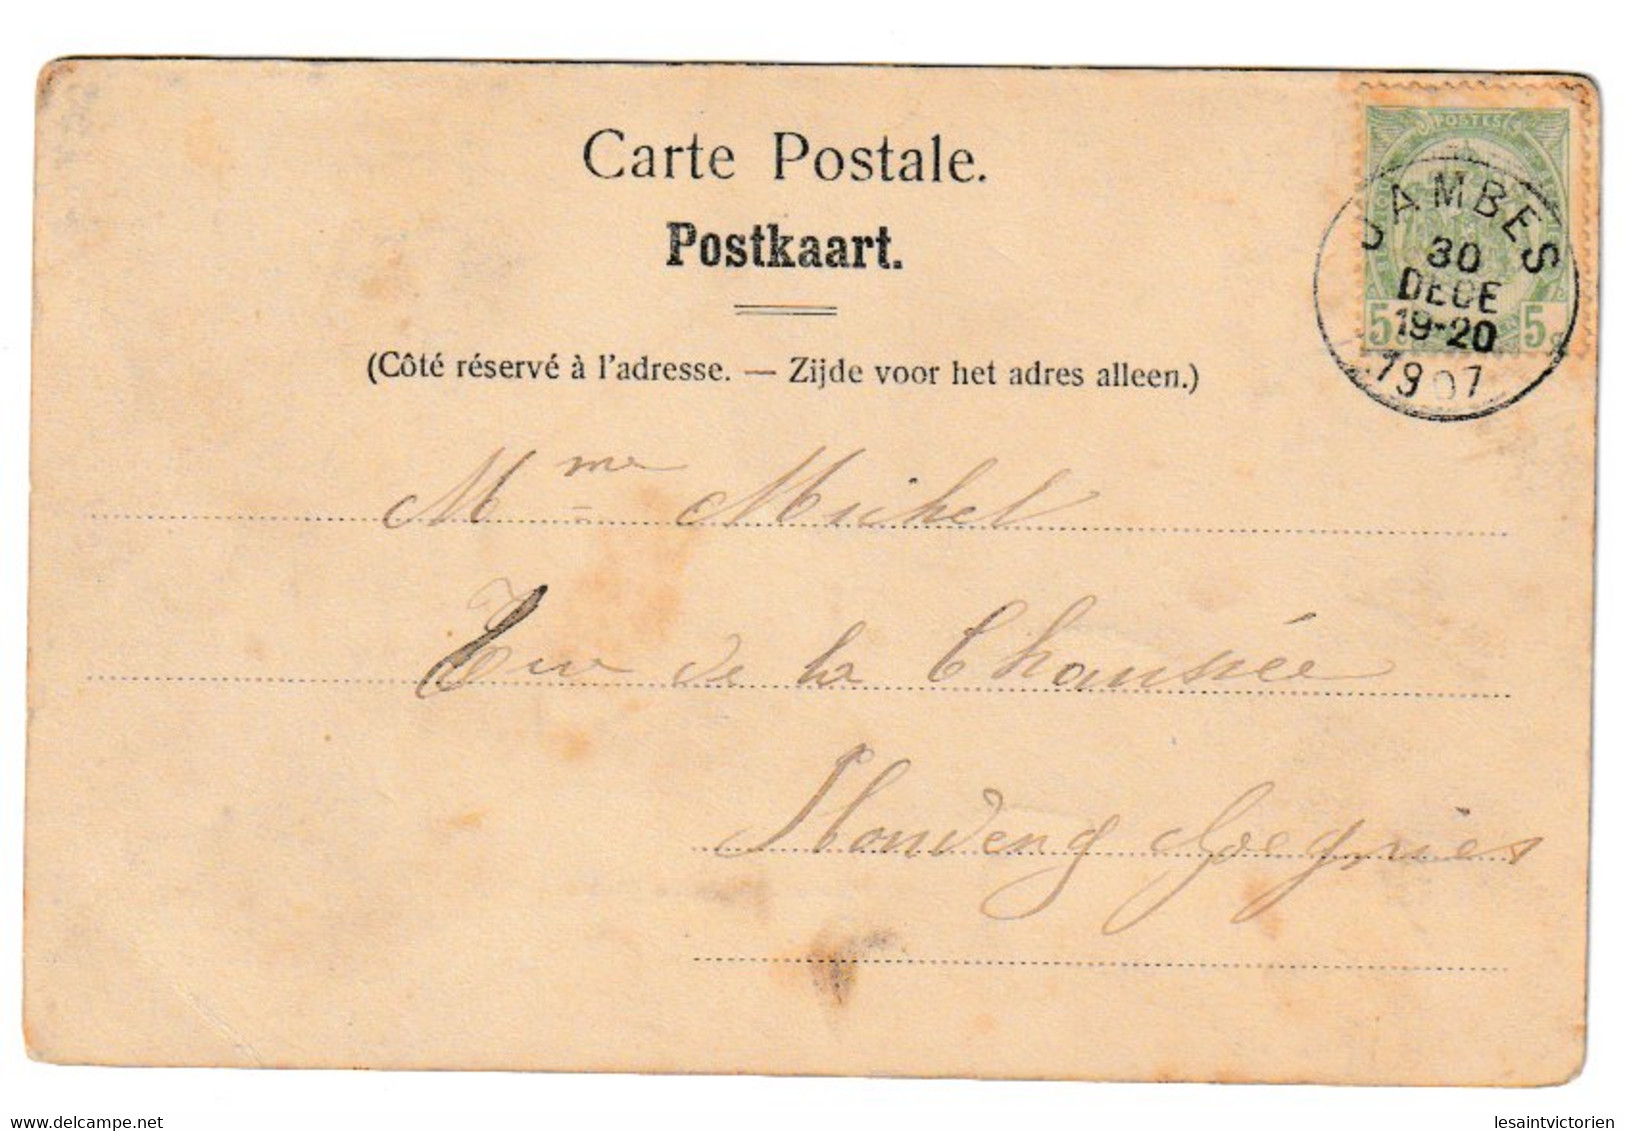 Carte Postale.
Postkaart.
(Côté réservé à l'adresse. — Zijde voor het adres alleen.)
POSTES
JAMBES
30
DECE
19-20
1907
5c 5c
Mme Michel
Rue de la Chaussée
Houdeng Goegnies
delcampe.net
lesaintvictorien